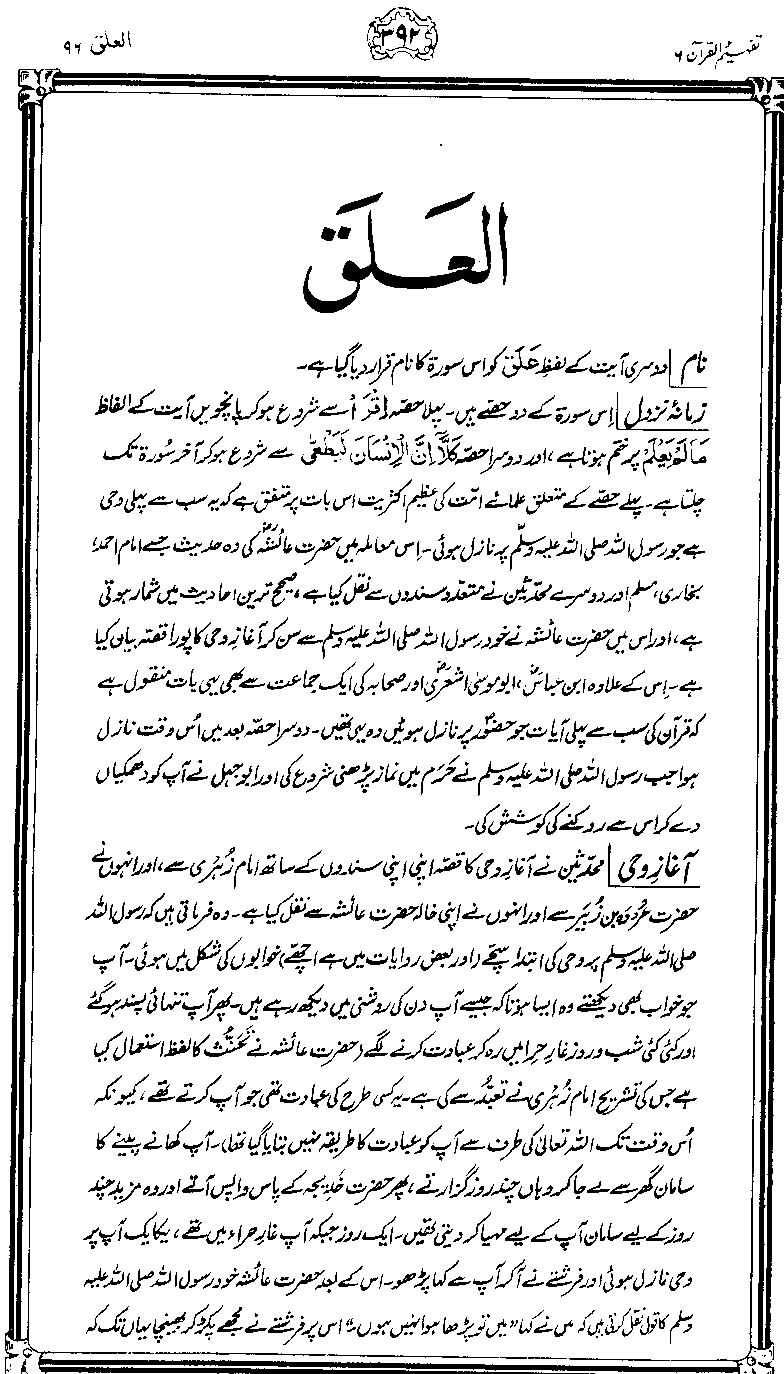 تفہیم القرآن ۶
۳۹۲
العلق ۹۶
العَلَق
نام | دوسری آیت کے لفظِ عَلَق کو اس سورۃ کا نام قرار دیا گیا ہے۔
زمانۂ نزول | اِس سورۃ کے دو حصّے ہیں۔ پہلا حصّہ اِقْرَاْ سے شروع ہو کر پانچویں آیت کے الفاظ
مَا لَمْ یَعْلَمْ پر ختم ہوتا ہے، اور دوسرا حصّہ کَلَّآ اِنَّ الْاِنْسَانَ لَیَطْغٰٓی سے شروع ہو کر آخر سُورۃ تک
چلتا ہے۔ پہلے حصّے کے متعلق علمائے امّت کی عظیم اکثریت اس بات پر متفق ہے کہ یہ سب سے پہلی وحی
ہے جو رسول اللہ صلی اللہ علیہ وسلّم پر نازل ہوئی۔ اِس معاملہ میں حضرت عائشہؓ کی وہ حدیث جسے امام احمد،
بخاری، مسلم اور دوسرے محدّثین نے متعدّد سندوں سے نقل کیا ہے، صحیح ترین احادیث میں شمار ہوتی
ہے، اور اس میں حضرت عائشہؓ نے خود رسول اللہ صلی اللہ علیہ وسلم سے سن کر آغازِ وحی کا پورا قصّہ بیان کیا
ہے۔ اِس کے علاوہ ابن عباسؓ، ابو موسیٰ اشعریؓ اور صحابہ کی ایک جماعت سے بھی یہی بات منقول ہے
کہ قرآن کی سب سے پہلی آیات جو حضورؐ پر نازل ہوئیں وہ یہی تھیں۔ دوسرا حصّہ بعد میں اُس وقت نازل
ہوا جب رسول اللہ صلی اللہ علیہ وسلم نے حَرَم میں نماز پڑھنی شروع کی اور ابو جہل نے آپ کو دھمکیاں
دے کر اس سے روکنے کی کوشش کی۔
آغازِ وحی | محدّثین نے آغازِ وحی کا قصّہ اپنی اپنی سندوں کے ساتھ امام زُہری سے، اور انہوں نے
حضرت عُروہ بن زُبَیر سے اور انہوں نے اپنی خالہ حضرت عائشہ سے نقل کیا ہے۔ وہ فرماتی ہیں کہ رسول اللہ
صلی اللہ علیہ وسلم پر وحی کی ابتدا سچّے (اور بعض روایات میں ہے اچھّے) خوابوں کی شکل میں ہوئی۔ آپ
جو خواب بھی دیکھتے وہ ایسا ہوتا کہ جیسے آپ دن کی روشنی میں دیکھ رہے ہیں۔ پھر آپ تنہائی پسند ہو گئے
اور کئی کئی شب و روز غارِ حِرا میں رہ کر عبادت کرنے لگے (حضرت عائشہ نے تَحَنُّث کا لفظ استعمال کیا
ہے جس کی تشریح امام زُہری نے تعبّد سے کی ہے۔ یہ کسی طرح کی عبادت تھی جو آپ کرتے تھے، کیونکہ
اُس وقت تک اللہ تعالیٰ کی طرف سے آپ کو عبادت کا طریقہ نہیں بتایا گیا تھا)۔ آپ کھانے پینے کا
سامان گھر سے لے جا کر وہاں چند روز گزارتے، پھر حضرت خدیجہ کے پاس واپس آتے اور وہ مزید چند
روز کے لیے سامان آپ کے لیے مہیا کر دیتی تھیں۔ ایک روز جبکہ آپ غارِ حراء میں تھے، یکایک آپ پر
وحی نازل ہوئی اور فرشتے نے آ کر آپ سے کہا پڑھو۔ اس کے بعد حضرت عائشہ خود رسول اللہ صلی اللہ علیہ
وسلم کا قول نقل کرتی ہیں کہ میں نے کہا "میں تو پڑھا ہوا نہیں ہوں"۔ اس پر فرشتے نے مجھے پکڑ کر بھینچا یہاں تک کہ